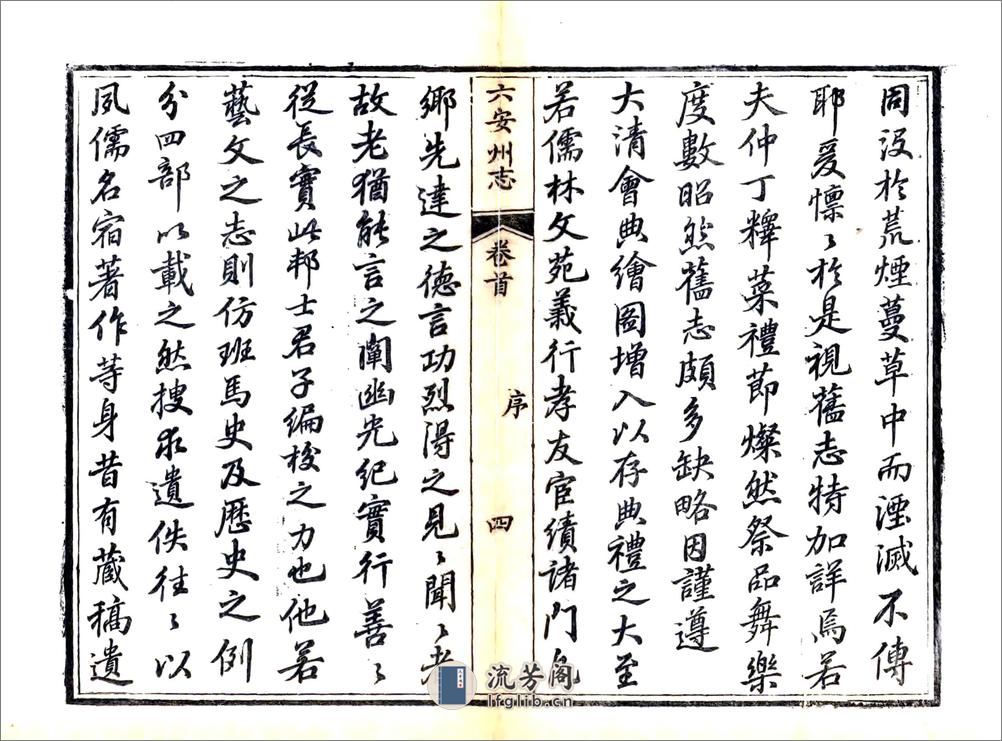 周沒於荒煙蔓草中而湮滅不傳
耶爰懍〻於是視舊志特加詳焉若
夫仲丁釋菜禮節燦然祭品舞樂
度數昭然舊志頗多缺略因謹遵
大清會典繪圖增入以存典禮之大至
若儒林文苑義行孝友宦績諸門
六安州志
卷首
序
四
鄉先達之德言功烈得之見〻聞〻者
故老猶能言之闡幽光紀實行善〻
從長實此邦士君子編校之力也他若
藝文之志則仿班馬史及歷史之例
分四部以載之然搜求遺佚往〻以
夙儒名宿著作等身昔有藏稿遺
流芳阁
lfglib.cn